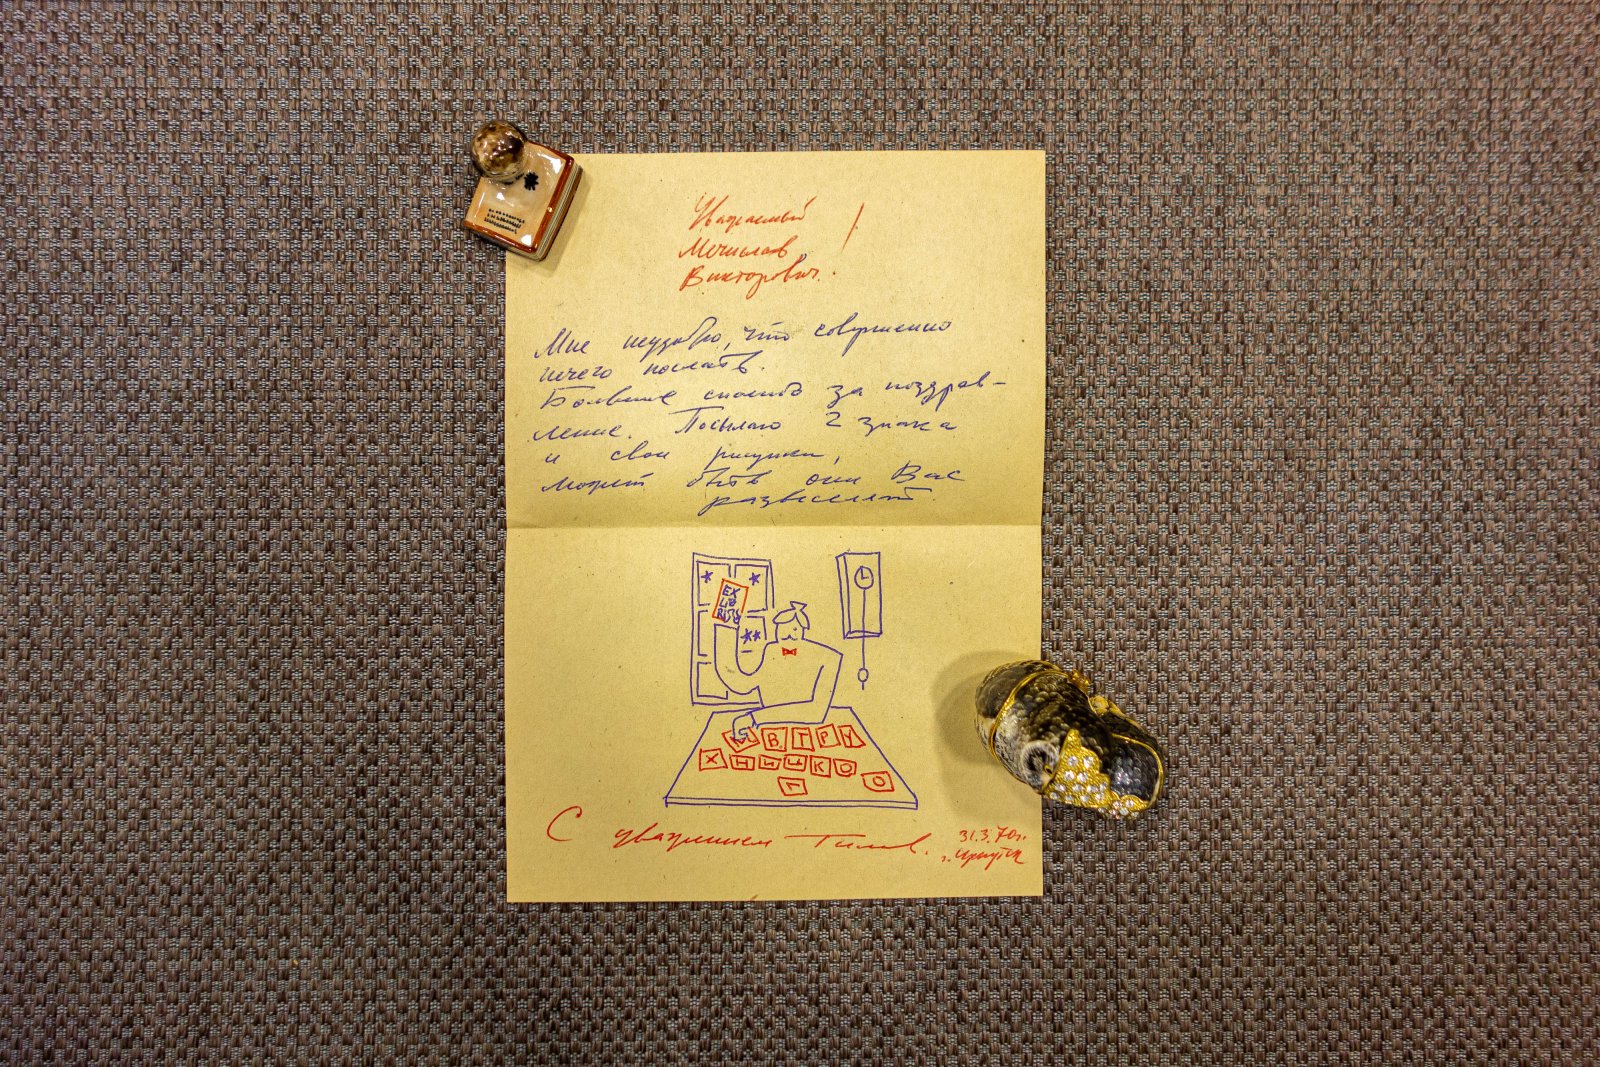 Уважаемый
Мечислав !
Викторович.
Мне неудобно, что совершенно
нечего послать.
Большое спасибо за поздрав-
ление. Посылаю 2 знака
и свои рисунки,
может быть они Вас
развеселят.
EX
LIB
RIS
В Г Р У
Х Н И Ч К О
Г О
С уважением
31.3.70г.
г. Иркутск